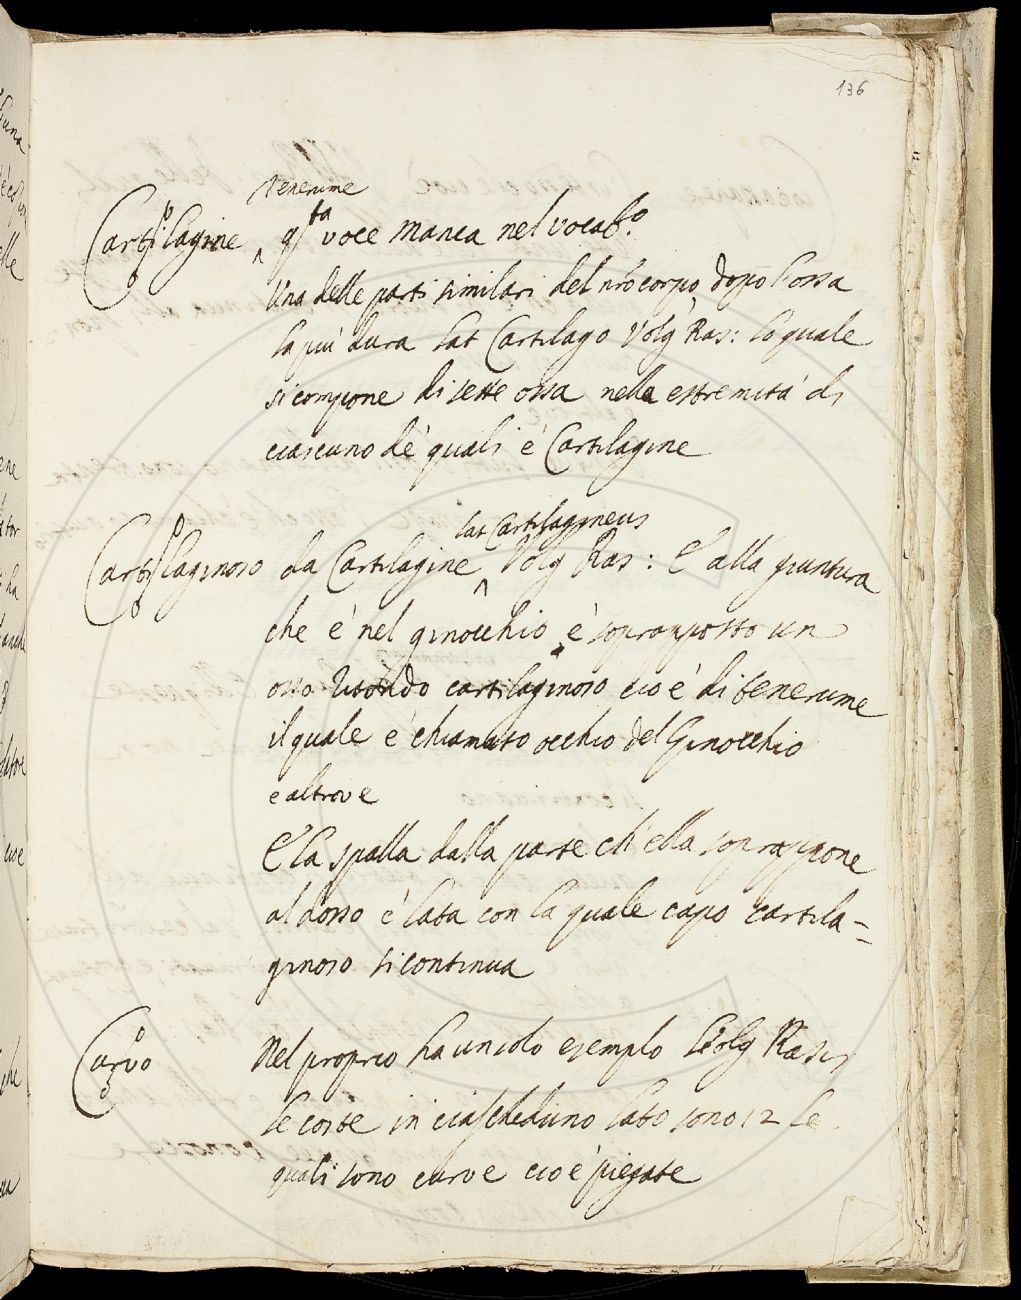 136
tenerume
Cartilagine qsta voce manca nel vocabo.
Una delle parti similari del nro corpo dopo l'ossa
la più dura lat Cartilago Volg Ras: lo quale
si compone di sette ossa nella estremità di
ciascuno de' quali è Cartilagine
lat Cartilagineus
Cartilaginoso da Cartilagine Volg Ras: E alla giuntura
che è nel ginocchio è soprapposto un
osso ritondo cartilaginoso cioè di tenerume
il quale è chiamato occhio del Ginocchio
e altrove
E la spalla dalla parte ch'ella soprappone
al dosso è lata con la quale capo cartila=
ginoso si continua
Curvo Nel proprio ha un solo esemplo Volg Rasis
le coste in ciascheduno lato sono 12 le
quali sono curve cioè piegate